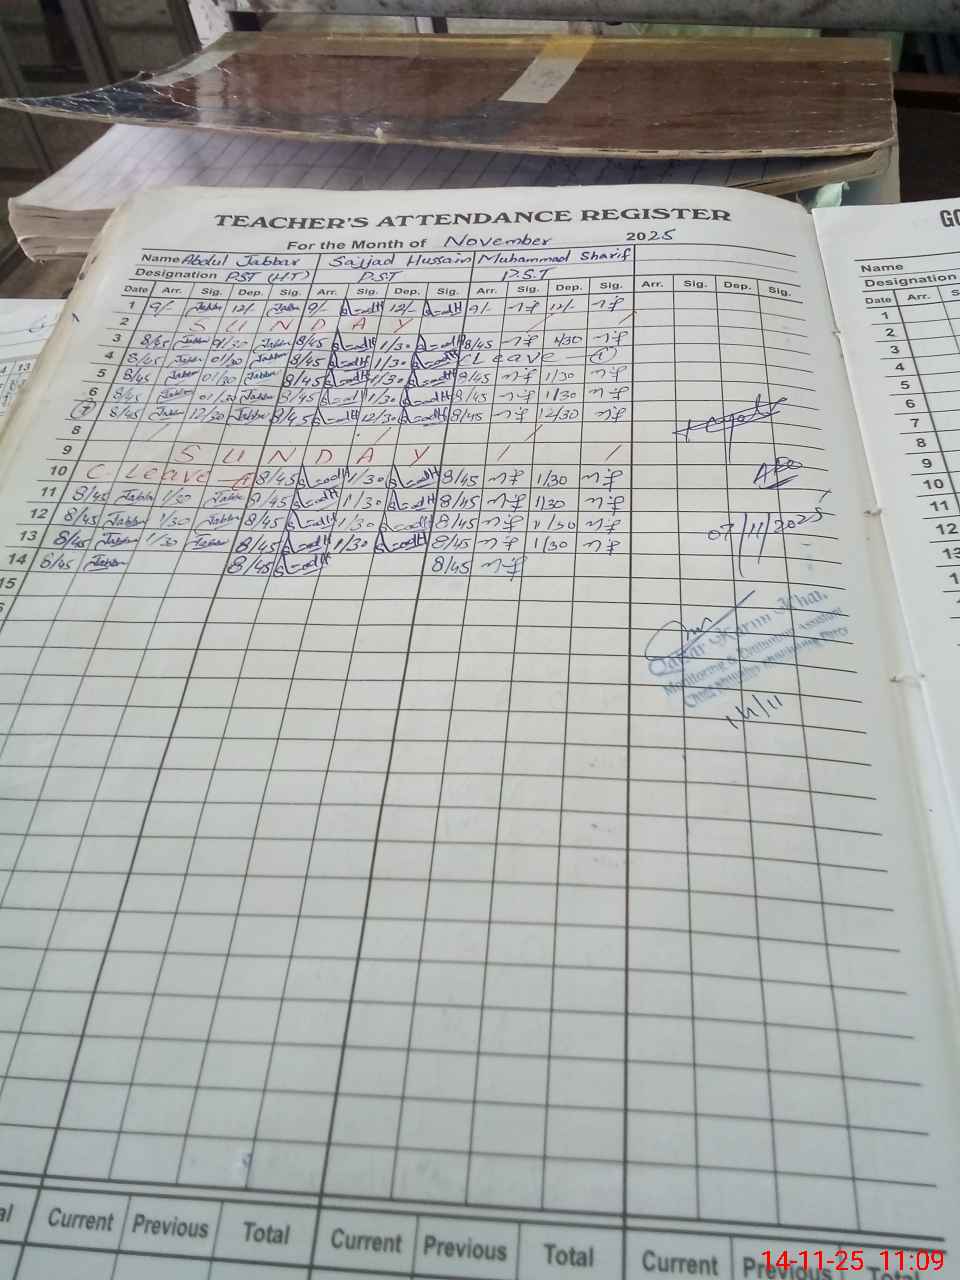 TEACHER'S ATTENDANCE REGISTER
For the Month of November 2025
Name Abdul Jabbar Sajjad Hussain Muhammad Sharif
Designation PST (HT) P.S.T P.S.T
Date Arr. Sig. Dep. Sig. Arr. Sig. Dep. Sig. Arr. Sig. Dep. Sig. Arr. Sig. Dep. Sig.
1 9/- Jabbar 12/- Jabbar 9/- 12/- 9/- 12/-
2 S U N D A Y
3 8/45 Jabbar 1/30 Jabbar 8/45 1/30 8/45 1/30
4 8/45 Jabbar 01/30 Jabbar 8/45 1/30 C Leave - (1)
5 8/45 Jabbar 01/30 Jabbar 8/45 1/30 8/45 1/30
6 8/45 Jabbar 01/30 Jabbar 8/45 1/30 8/45 1/30
7 8/45 Jabbar 12/30 Jabbar 8/45 12/30 8/45 12/30
8
9 S U N D A Y
10 C- Leave 8/45 1/30 8/45 1/30
11 8/45 Jabbar 1/30 Jabbar 8/45 1/30 8/45 1/30
12 8/45 Jabbar 1/30 Jabbar 8/45 1/30 8/45 1/30
13 8/45 Jabbar 1/30 Jabbar 8/45 1/30 8/45 1/30
14 8/45 Jabbar 8/45 8/45
15
07/11/2025
Karim Khan
Monitoring & Evaluation Assistant
Current Previous Total Current Previous Total Current Previous Total
Name
Designation
Date Arr. Sig.
1
2
3
4
5
6
7
8
9
10
11
12
13
14-11-25 11:09